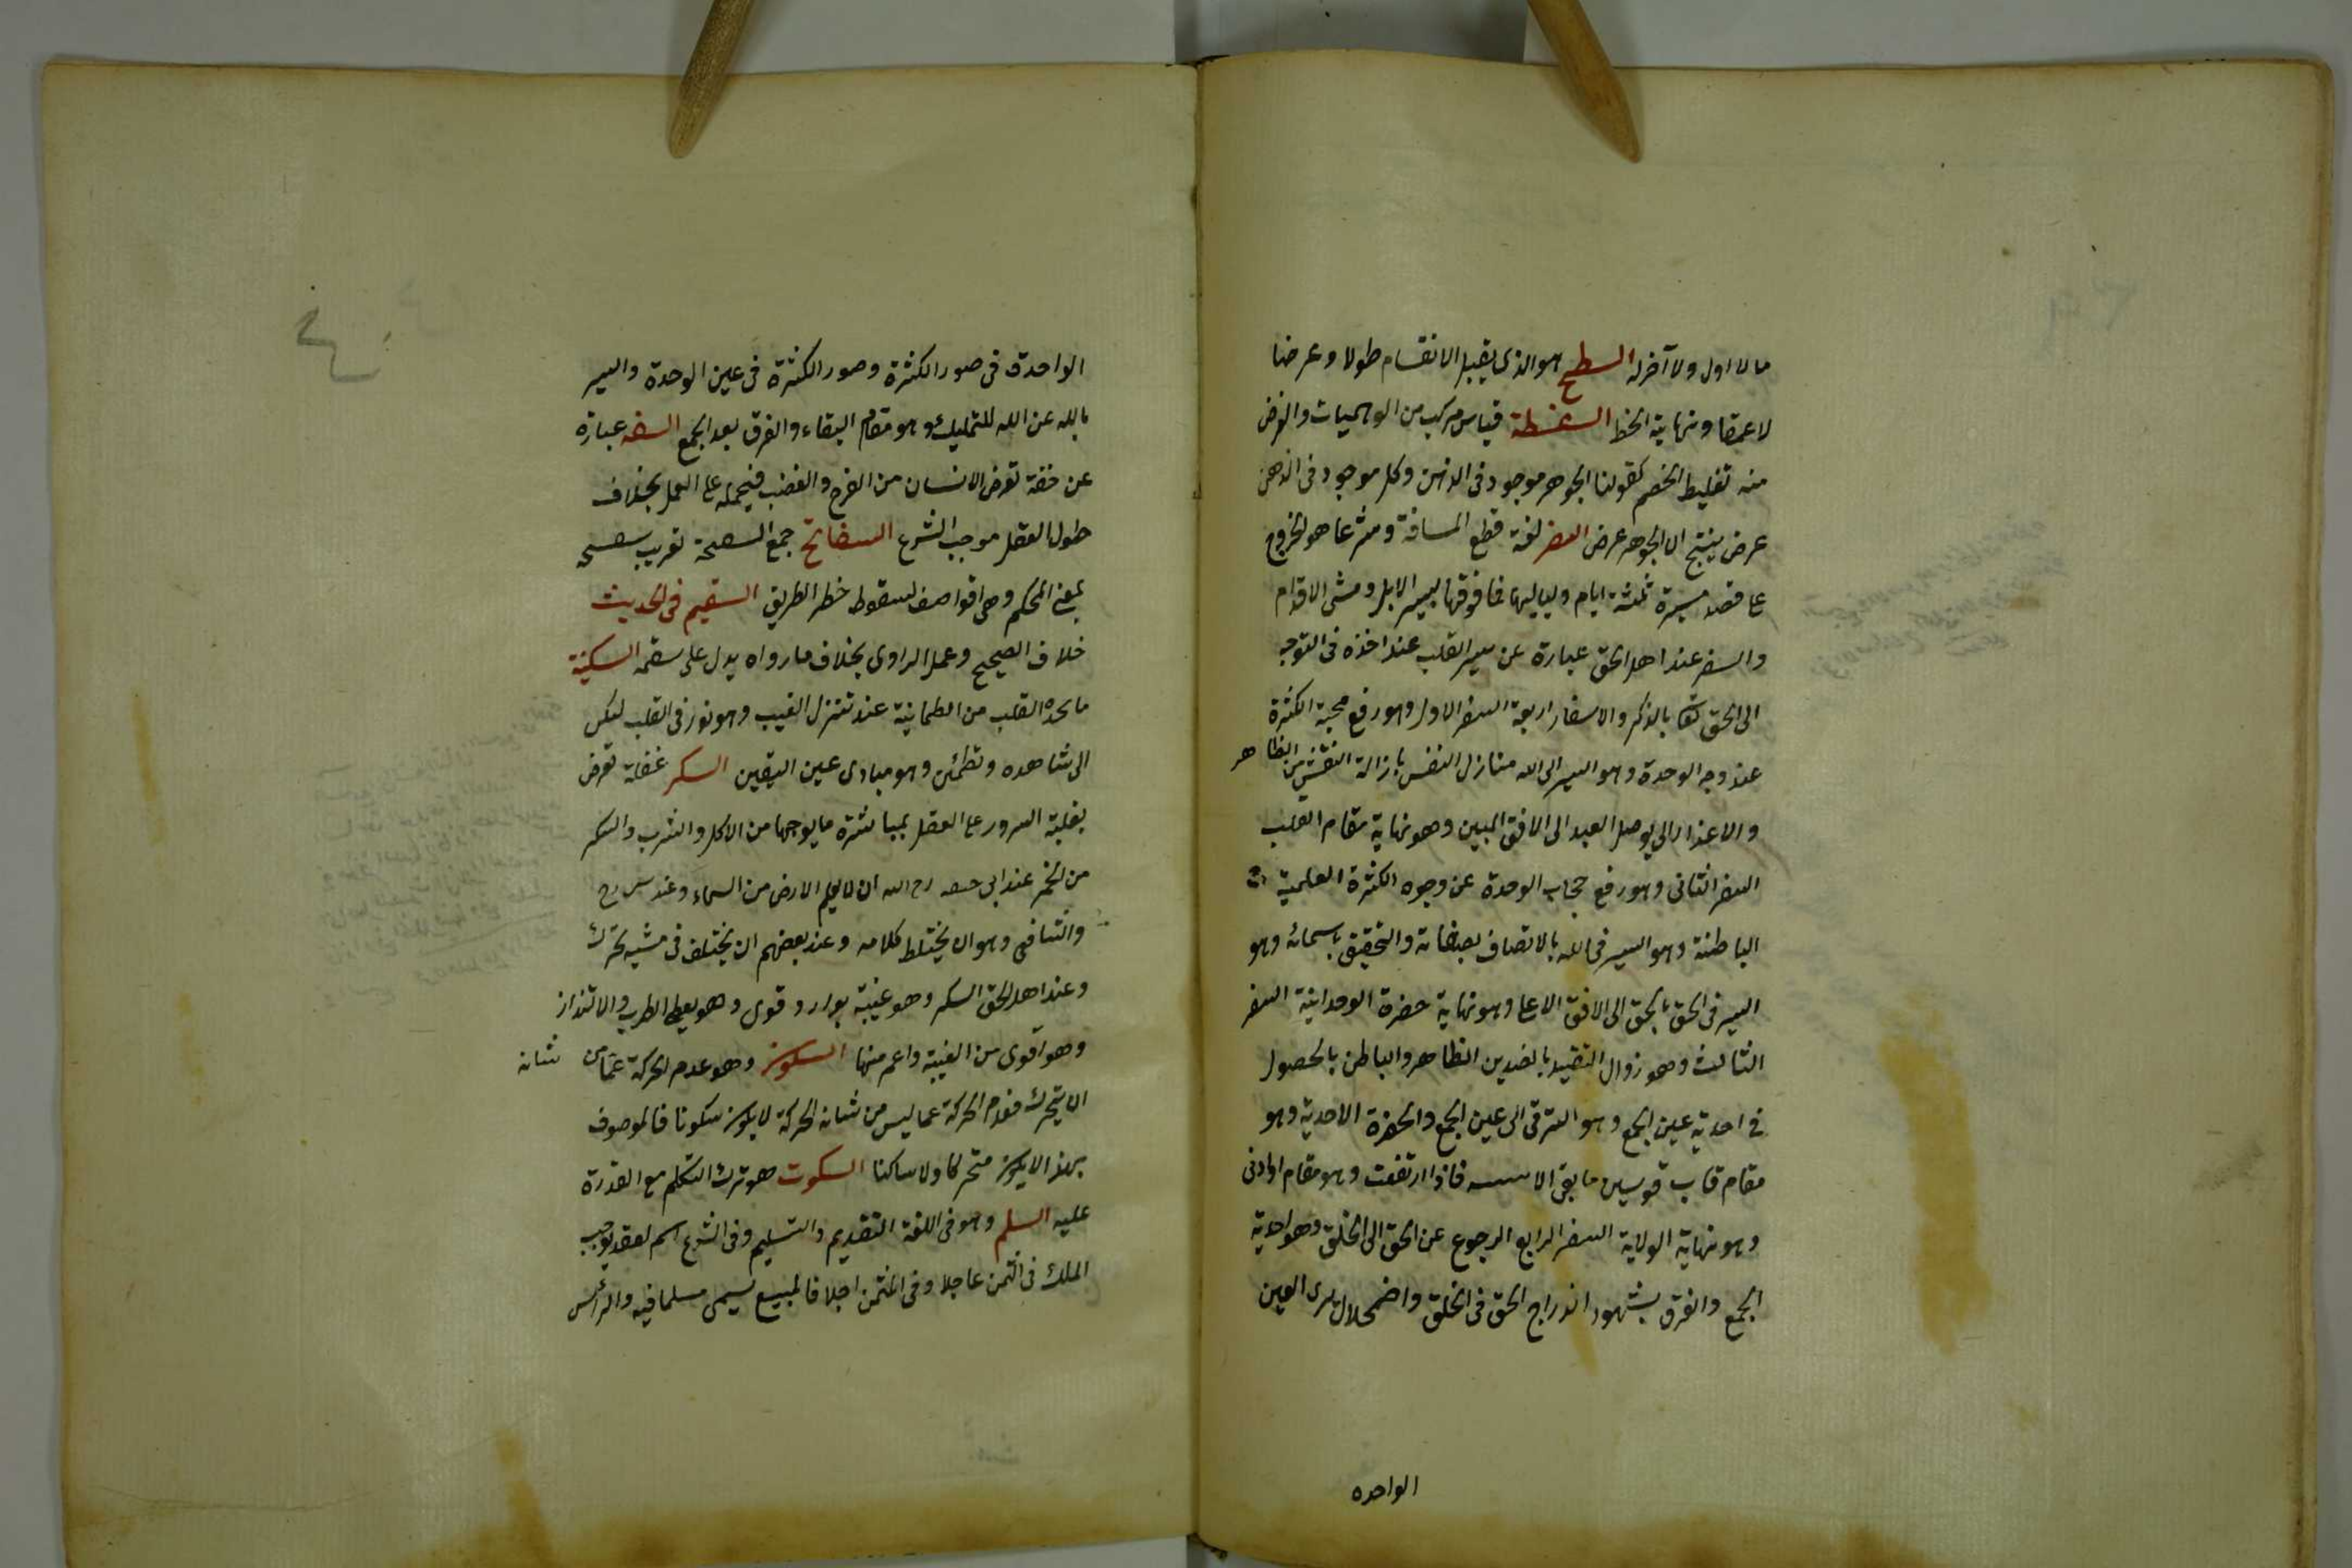 ما لا اول ولا آخر له السطح هو الذى يقبل الانقسام طولا وعرضا
لا عمقا ونهايته الخط السفسطة قياس مركب من الوهميات والغرض
منه تغليط الخصم كقولنا الجوهر موجود فى الذهن وكل موجود فى الذهن
عرض ينتج ان الجوهر عرض السفر لغة قطع المسافة وشرعا هو الخروج
على قصد مسيرة ثلثة ايام ولياليها فما فوقها بسير الابل ومشى الاقدام
والسفر عند اهل الحق عبارة عن سير القلب عند اخذه فى التوجه
الى الحق تعا بالذكر والاسفار اربعة السفر الاول وهو رفع حجبة الكثرة
عند وجه الوحدة وهو السير الى الله منازل النفس بازالة التعشق من المظاهر
والاغذار الى يوصل العبد الى الافق المبين وهو نهاية مقام القلب
السفر الثانى وهو رفع حجاب الوحدة عن وجوه الكثرة العلمية
الباطنة وهو السير فى الله بالاتصاف بصفاته والتحقيق باسمائه وهو
السير فى الحق بالحق الى الافق الاعلى وهو نهاية حضرة الوحدانية السفر
الثالث وهو زوال التقييد بالضدين الظاهر والباطن بالحصول
فى احدية عين الجمع وهو الترقى الى عين الجمع والحضرة الاحدية وهو
مقام قاب قوسين ما بقى الا سسه فاذا ارتفعت وهو مقام او ادنى
وهو نهاية الولاية السفر الرابع الرجوع عن الحق الى الخلق وهو احدية
الجمع والفرق بشهود اندراج الحق فى الخلق واضمحلال يرى العين
الواحده
الواحدة فى صور الكثرة وصور الكثرة فى عين الوحدة والسير
بالله عن الله للتمليك وهو مقام البقاء والفرق بعد الجمع السفه عبارة
عن خفة تعرض الانسان من الفرح والغضب فيحمله على العمل بخلاف
طول العقل موجب الشرع السفاتج جمع السفتجة تعريب سفته
بمعنى المحكم وهى اقراض لسقوط خطر الطريق السقيم فى الحديث
خلاف الصحيح وعمل الراوى بخلاف ما رواه يدل على سقمه السكينة
ما يجده القلب من الطمانينة عند تنزل الغيب وهو نور فى القلب يسكن
الى شاهده وتطمئن وهو مبادى عين اليقين السكر غفلة تعرض
بغلبة السرور على العقل بمباشرة ما يوجبها من الاكل والشرب والسكر
من الخمر عند ابى حنيفه رح الله ان لا يعلم الارض من السماء وعند س رح
والشافعى وهو ان يختلط كلامه وعند بعضهم ان يختلف فى مشيه تحرك
وعند اهل الحق السكر وهو غيبة بوارد قوى وهو يعطى الطرب والالتذاذ
وهو اقوى من الغيبة واعم منها السكون وهو عدم الحركة عما من شانه
ان يتحرك فعدم الحركة عما ليس من شانه الحركة لا يكون سكونا فالموصوف
بهذا لا يكون متحركا ولا ساكنا السكوت هو ترك التكلم مع القدرة
عليه السلم وهو فى اللغة التقديم والتسليم وفى الشرع اسم لعقد يوجب
الملك فى الثمن عاجلا وفى المثمن اجلا فالمبيع يسمى مسلما فيه والرأس